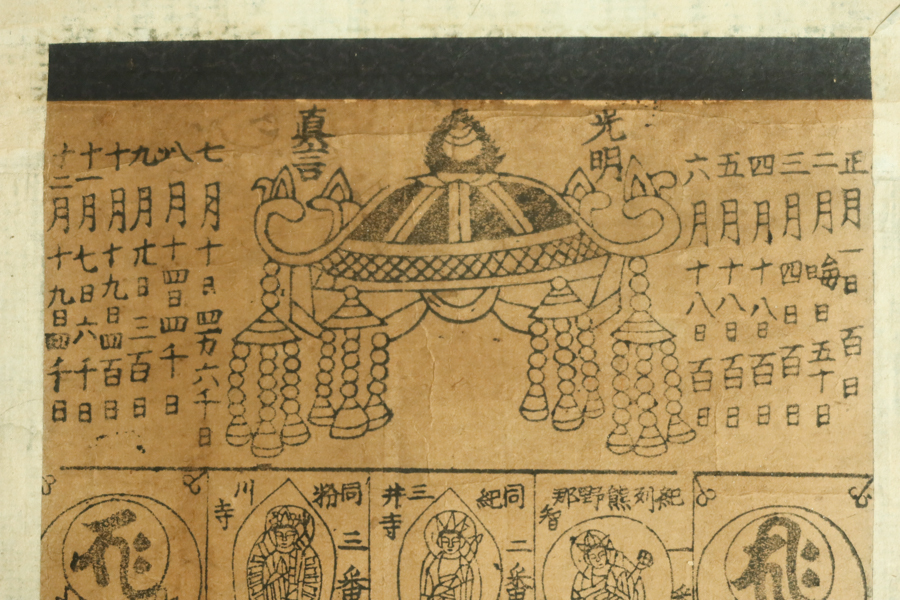 光明
真言
正月一日百日
二月晦日五十日
三月四日百日
四月十八日百日
五月十八日百日
六月十八日百日
七月十日四万六千日
八月十四日四千日
九月廿日三百日
十月十九日四百日
十一月七日六千日
十二月十九日四千日
紀列熊野那智
同紀
二番
三井寺
同粉
三番
川寺